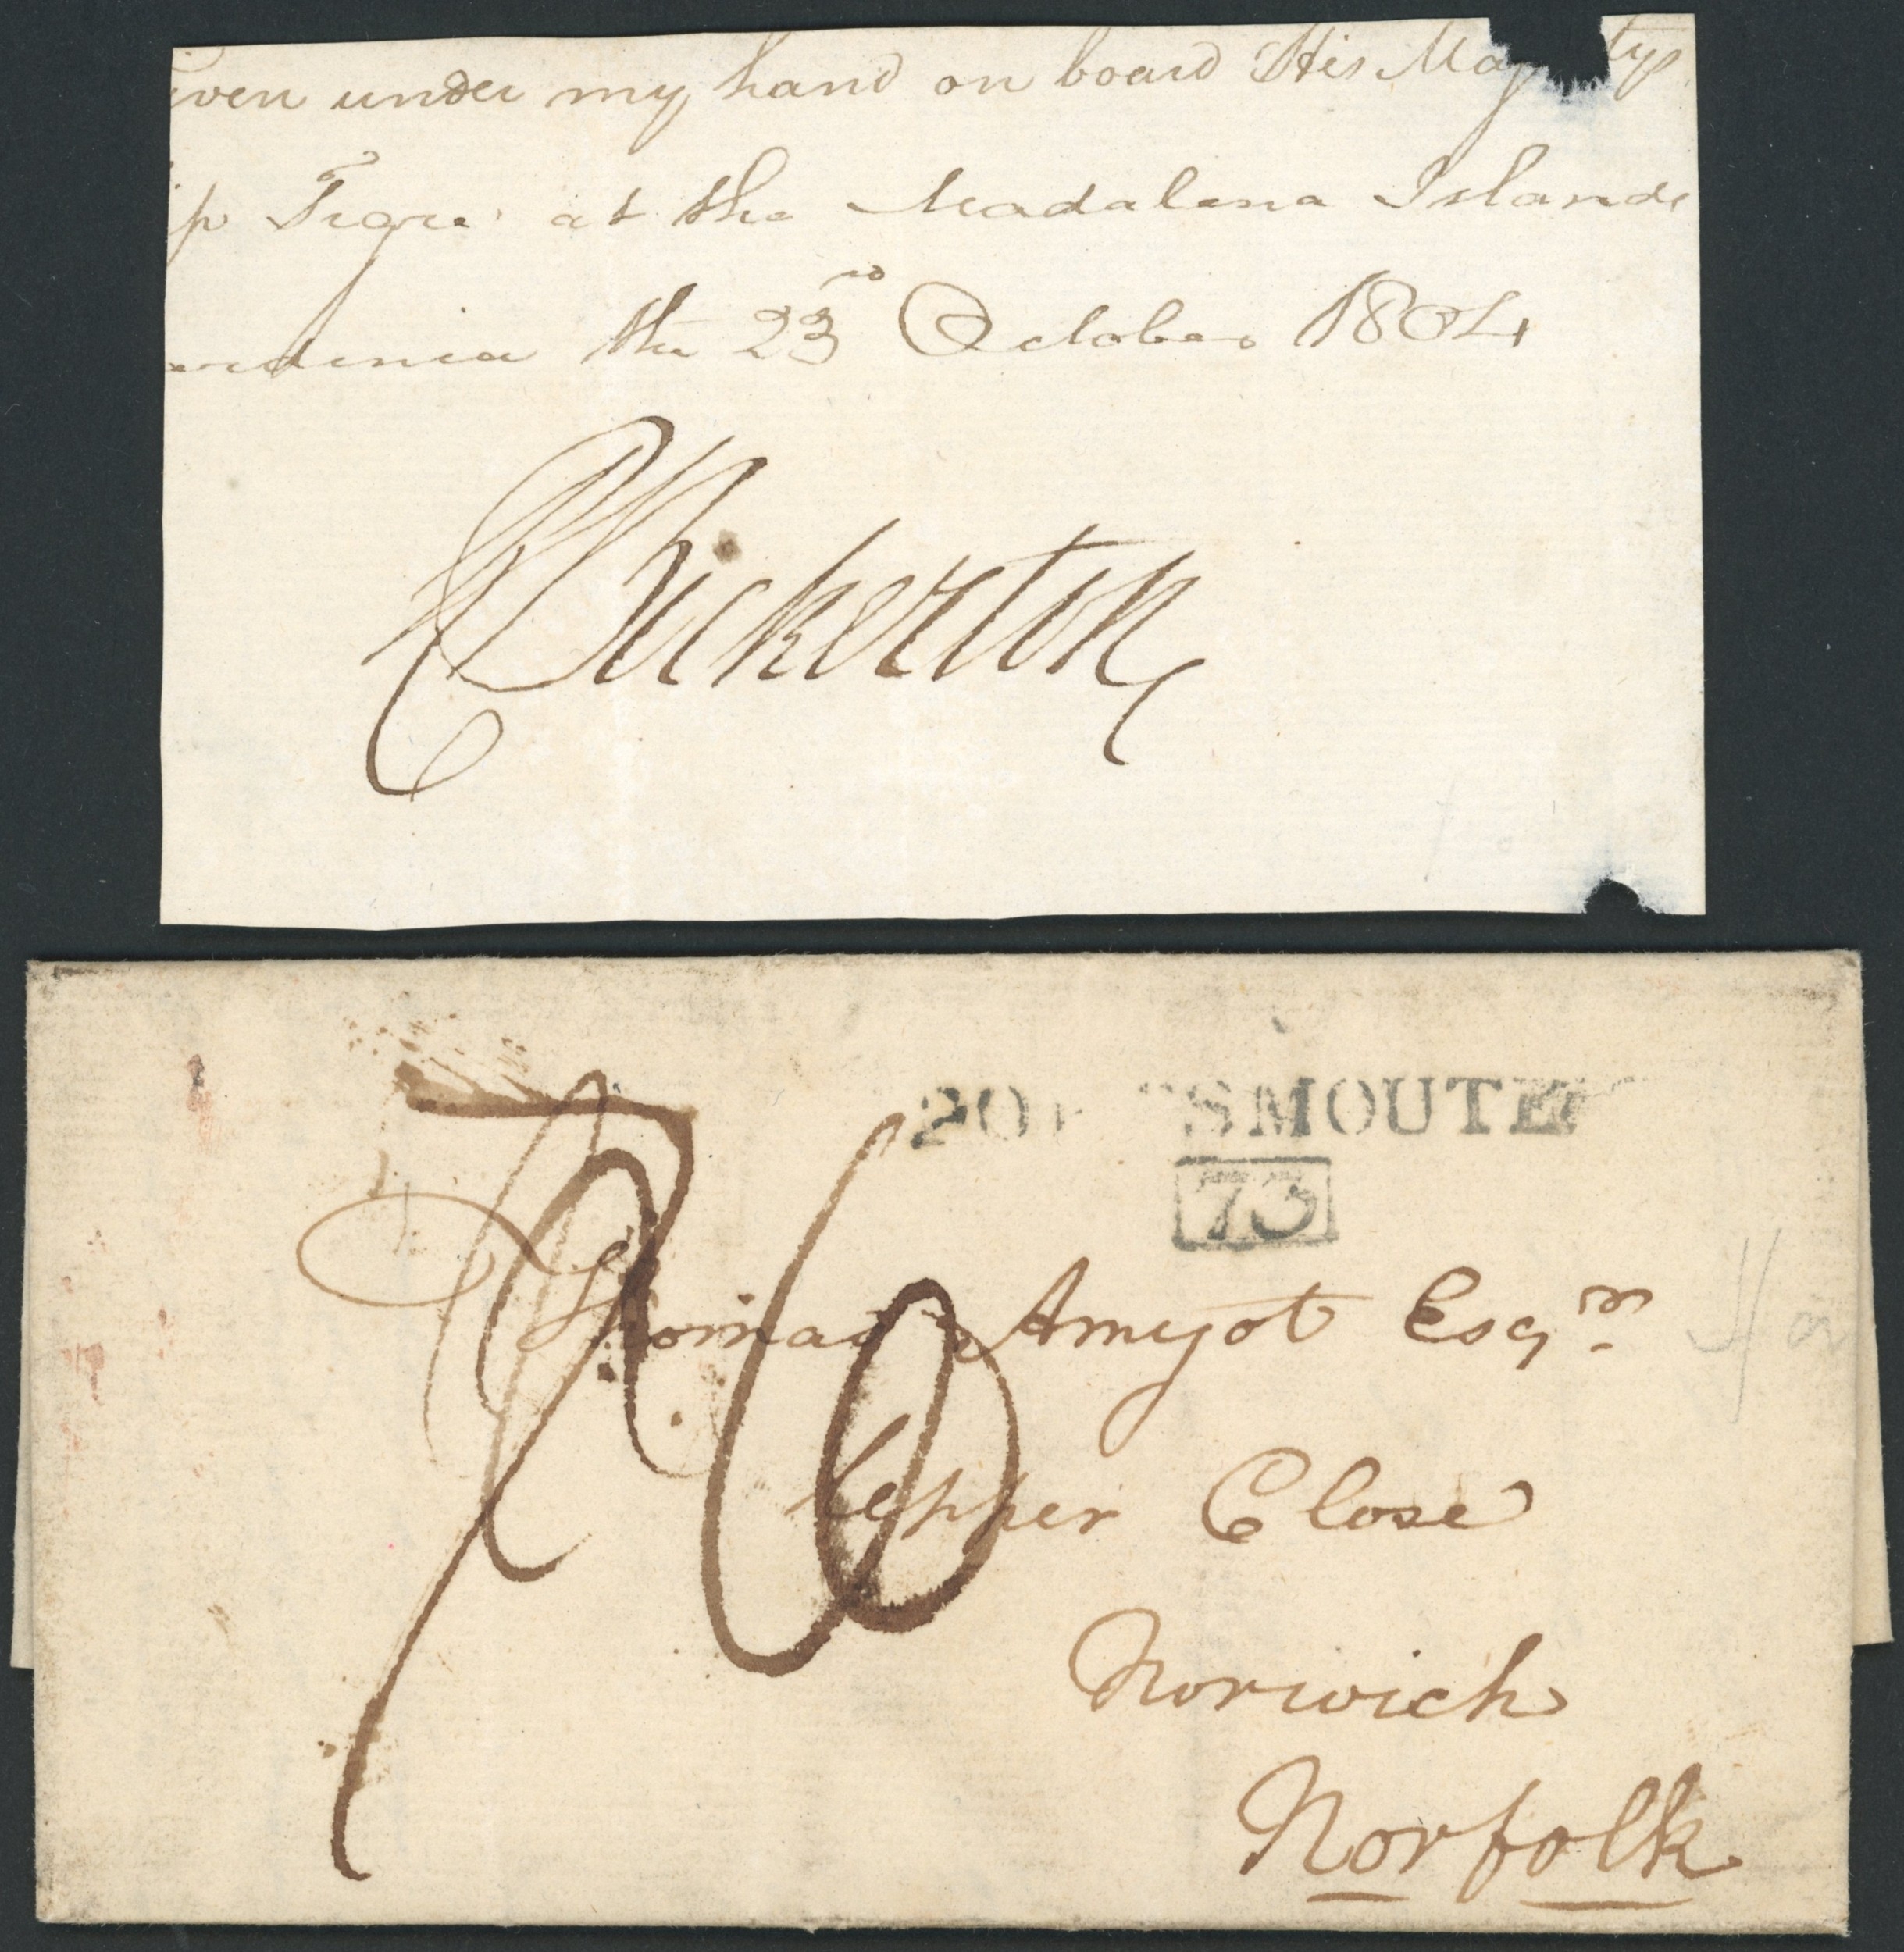 iven under my hand on board His Maj ty's
ip Tigre at the Madalena Islands
ardinia the 23rd October 1804
RBickerton
PORTSMOUTH
73
Thomas Amyot Esqr.
Upper Close
Norwich
Norfolk